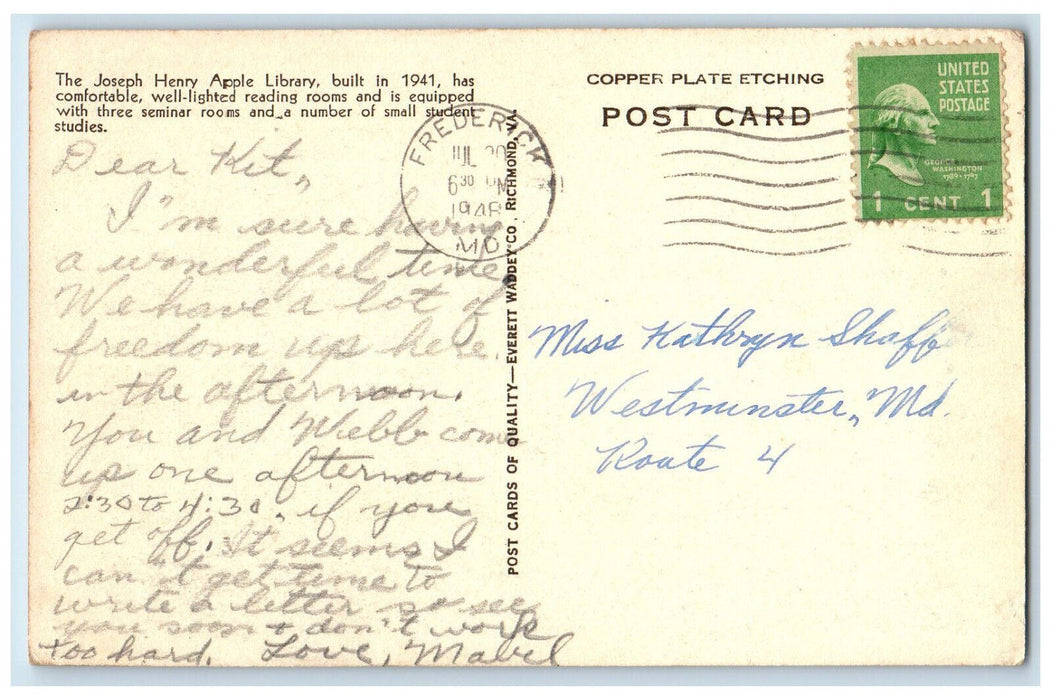 The Joseph Henry Apple Library, built in 1941, has
comfortable, well-lighted reading rooms and is equipped
with three seminar rooms and a number of small student
studies.
Dear Kit,
I'm sure having
a wonderful time.
We have a lot of
freedom up here.
in the afternoon.
You and Webb come
up one afternoon
2:30 to 4:30, if you
get off. It seems I
can't get time to
write a letter so see
you soon + don't work
too hard. Love, Mabel
FREDERICK
JUL
6 30 PM
1948
MD
POST CARDS OF QUALITY—EVERETT WADDEY CO., RICHMOND, VA.
COPPER PLATE ETCHING
POST CARD
UNITED
STATES
POSTAGE
GEORGE
WASHINGTON
1789-1797
1 CENT 1
Miss Kathryn Shaffer
Westminster, Md.
Route 4